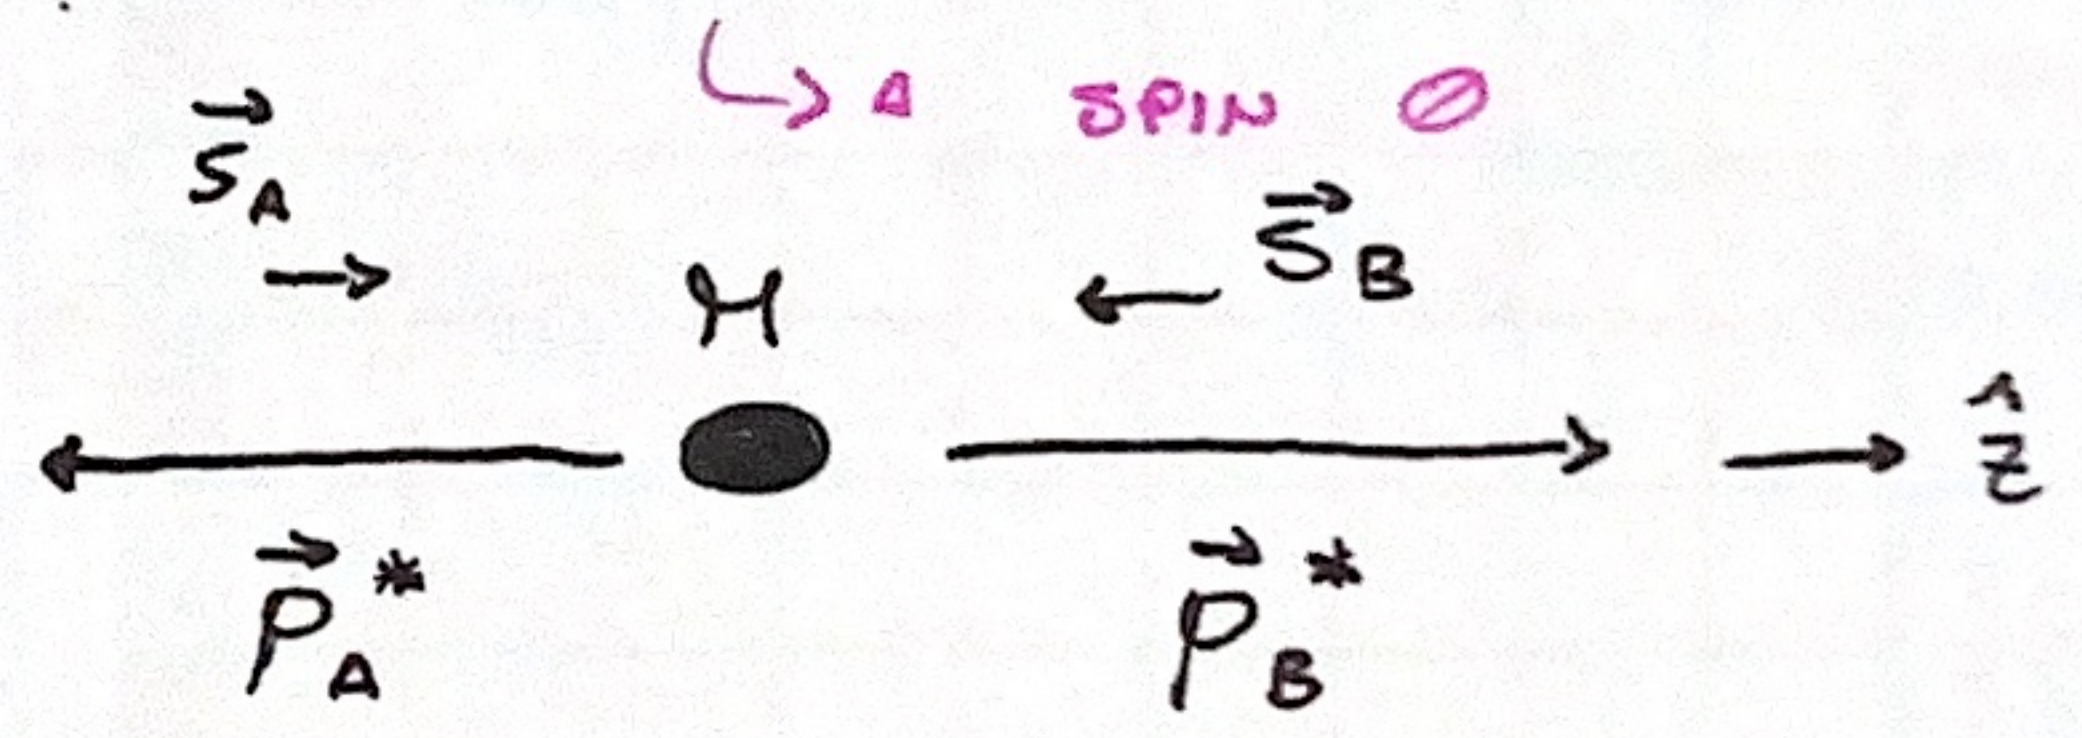 ↳ A SPIN ∅
→S_A
M
→S_B
→p_A*
→p_B*
ẑ